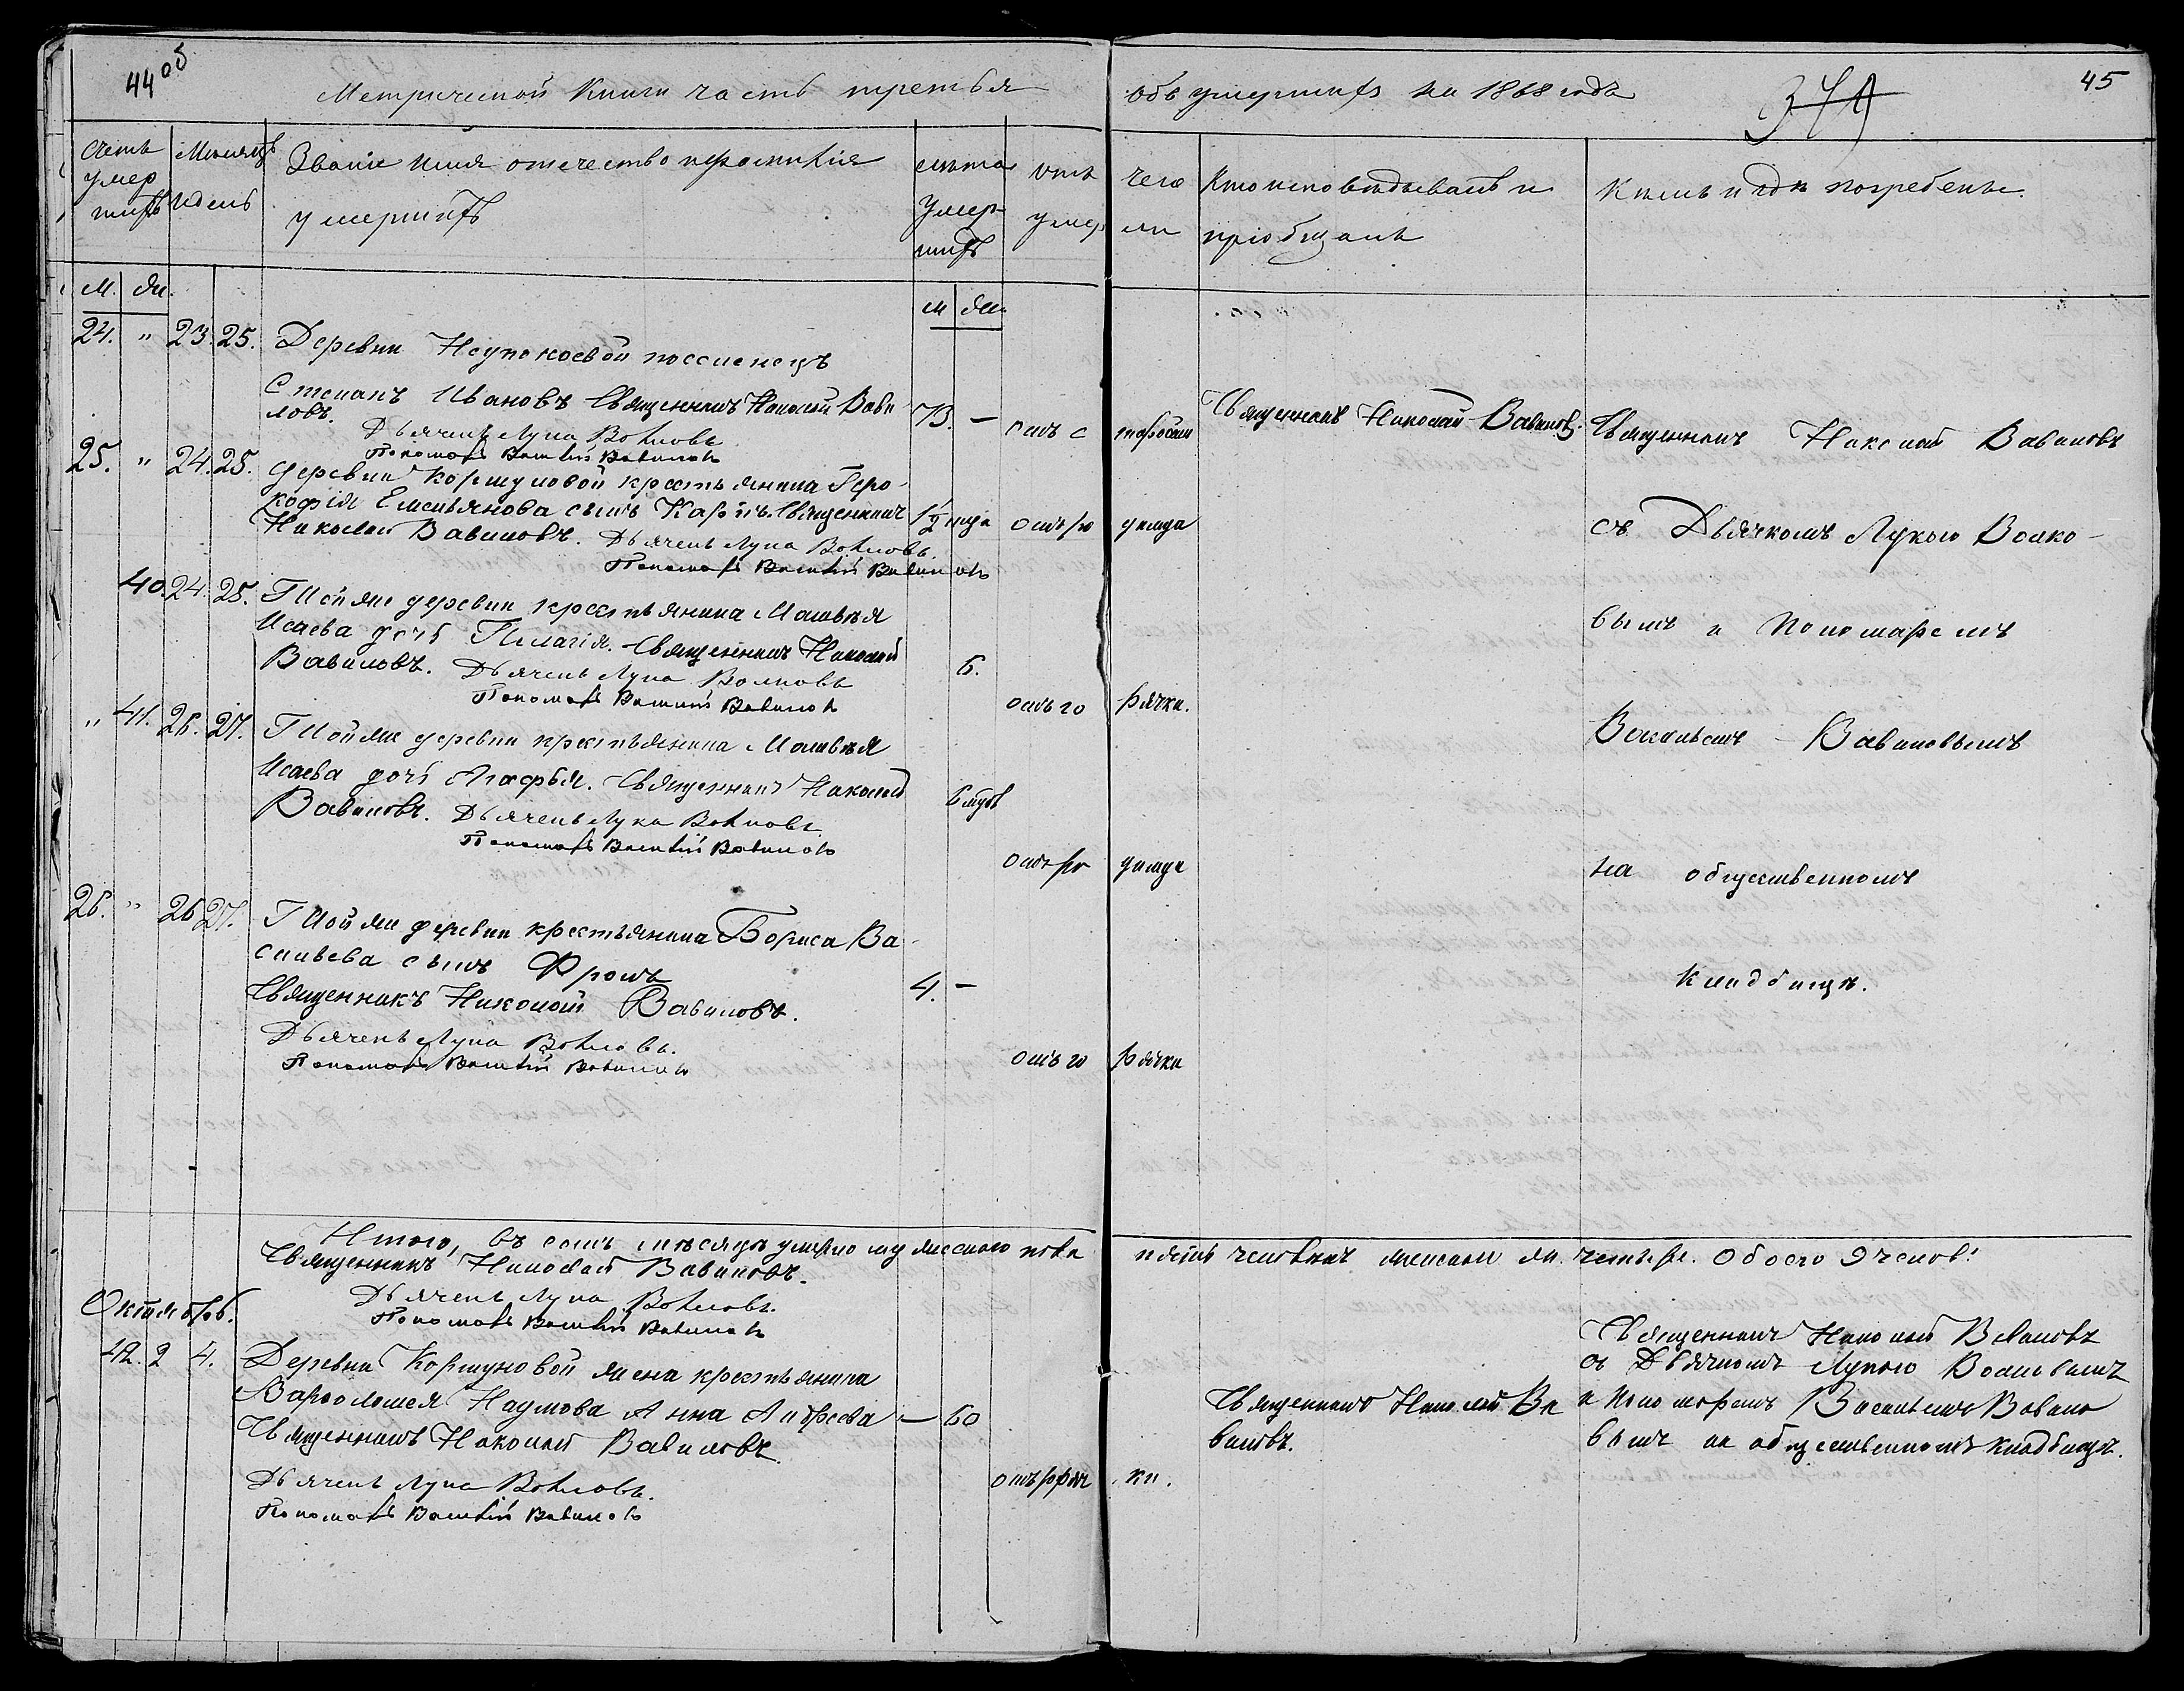 44 об
Метрической книги часть третья
объ умершихъ на 1868 годъ
45
Счетъ умершихъ
Мѣсяцъ и день
Званіе имя отечество и фамилія
умершихъ
Лѣта умершихъ
отъ чего
умерли
Кто исповѣдывалъ и
пріобщалъ
Кѣмъ и гдѣ погребены.
М. Ж.
М Жен.
24. " 23. 25. Деревни Неупокоевой поселенецъ
Степанъ Ивановъ Священникъ Николай Вави
ловъ. 73. —
Дьячекъ Лука Волковъ
Пономарь Василій Вавиловъ
отъ старости
Священникъ Николай Вавиловъ.
25. " 24. 25. Деревни Коршуновой крестьянина
Емельянова сынъ Карпъ. Священникъ 1/2 года отъ родимца
Николай Вавиловъ. Дьячекъ Лука Волковъ.
Пономарь Василій Вавиловъ
40. 24. 25. Той же деревни крестьянина Матвѣя
Исаева дочь Пелагія. Священникъ Николай
Вавиловъ. Дьячекъ Лука Волковъ 6.
Пономарь Василій Вавиловъ
отъ горячки.
" 41. 26. 27. Той же деревни крестьянина Матвѣя
Исаева дочь Агафья. Священникъ Николай
Вавиловъ. Дьячекъ Лука Волковъ
Пономарь Василій Вавиловъ
отъ родимца
26. " 26 27. Той же деревни крестьянина Бориса Ва
сильева сынъ Фролъ
Священникъ Николай Вавиловъ. 4. —
Дьячекъ Лука Волковъ.
Пономарь Василій Вавиловъ
отъ горячки
Священникъ Николай Вавиловъ
съ Дьячкомъ Лукою Волко-
вымъ и Пономаремъ
Васильемъ Вавиловымъ
на общественномъ
кладбищѣ.
Итого, въ семъ мѣсяцѣ умерло мужескаго пола пять человѣкъ женскаго четыре. Обоего 9 челов.
Священникъ Николай Вавиловъ.
Дьячекъ Лука Волковъ.
Пономарь Василій Вавиловъ
Октябрь.
42. 2 4. Деревни Коршуновой жена крестьянина
Варфоломея Наумова Анна Андреева — 60
Священникъ Николай Вавиловъ
Дьячекъ Лука Волковъ.
Пономарь Василій Вавиловъ
отъ горячки.
Священникъ Николай Ва
виловъ.
Священникъ Николай Вавиловъ
съ Дьячкомъ Лукою Волковымъ
и Пономаремъ Васильемъ Вавило
вымъ на общественномъ кладбищѣ.